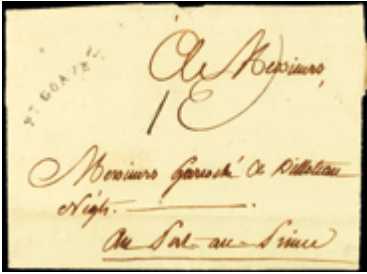 Pt GOAVE
A Messieurs
Messieurs Garesché & Billoteau
Négts.
Au Port-au-Prince